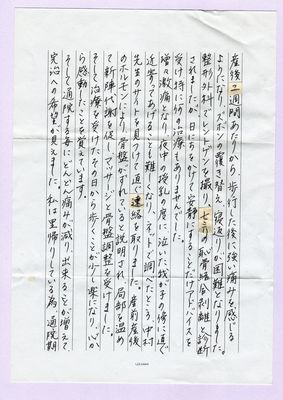 産後2週間あたりから、歩行した後に強い痛みを感じる
ようになり、ズボンの履き替え、寝返りが困難となりました。
整形外科でレントゲンを撮り、七ミリの恥骨結合剥離と診断
されましたが、日にちをかけて安静にすることだけアドバイスを
受け、特に何の治療もありませんでした。
増々激痛となり、夜中の授乳の度に、泣いた我が子の傍に直ぐ
近寄ってあげることも難しくなり、ネットで調べたところ、中村
先生のサイトを見つけて直ぐ連絡を取りました。産前産後
のホルモンにより、骨盤がずれていると説明され、局部を温め
て新陳代謝促し、マッサージと骨盤調整を受けました。
そして治療を受けたその日から歩くことが少し楽になり、心か
ら感動したことを覚えています。
そして通院する毎にどんどん痛みが減り、出来ることが増えて
完治への希望が見えました。私は里帰りしている為、通院期